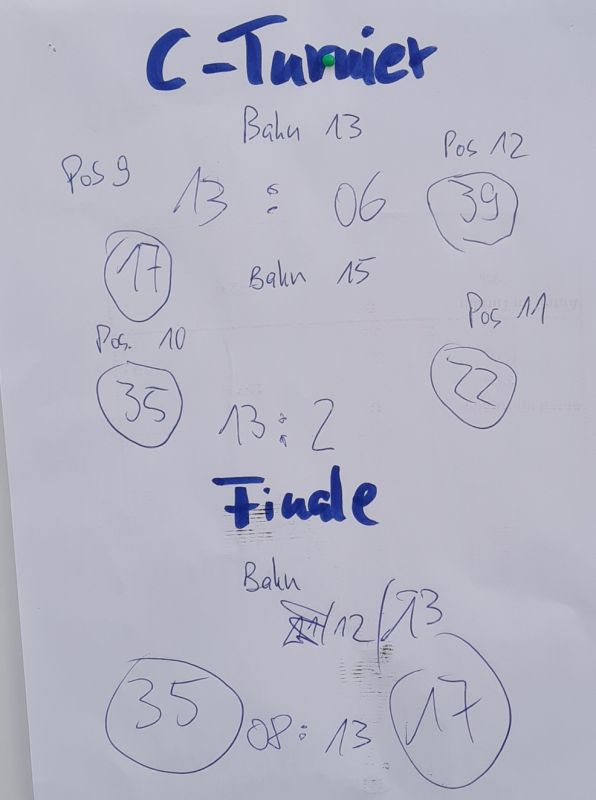 C-Turnier
Bahn 13
Pos 9
Pos 12
13 : 06
39
17
Bahn 15
Pos 11
Pos. 10
35
22
13 : 2
Finale
Bahn
/12/13
35 08 : 13 17